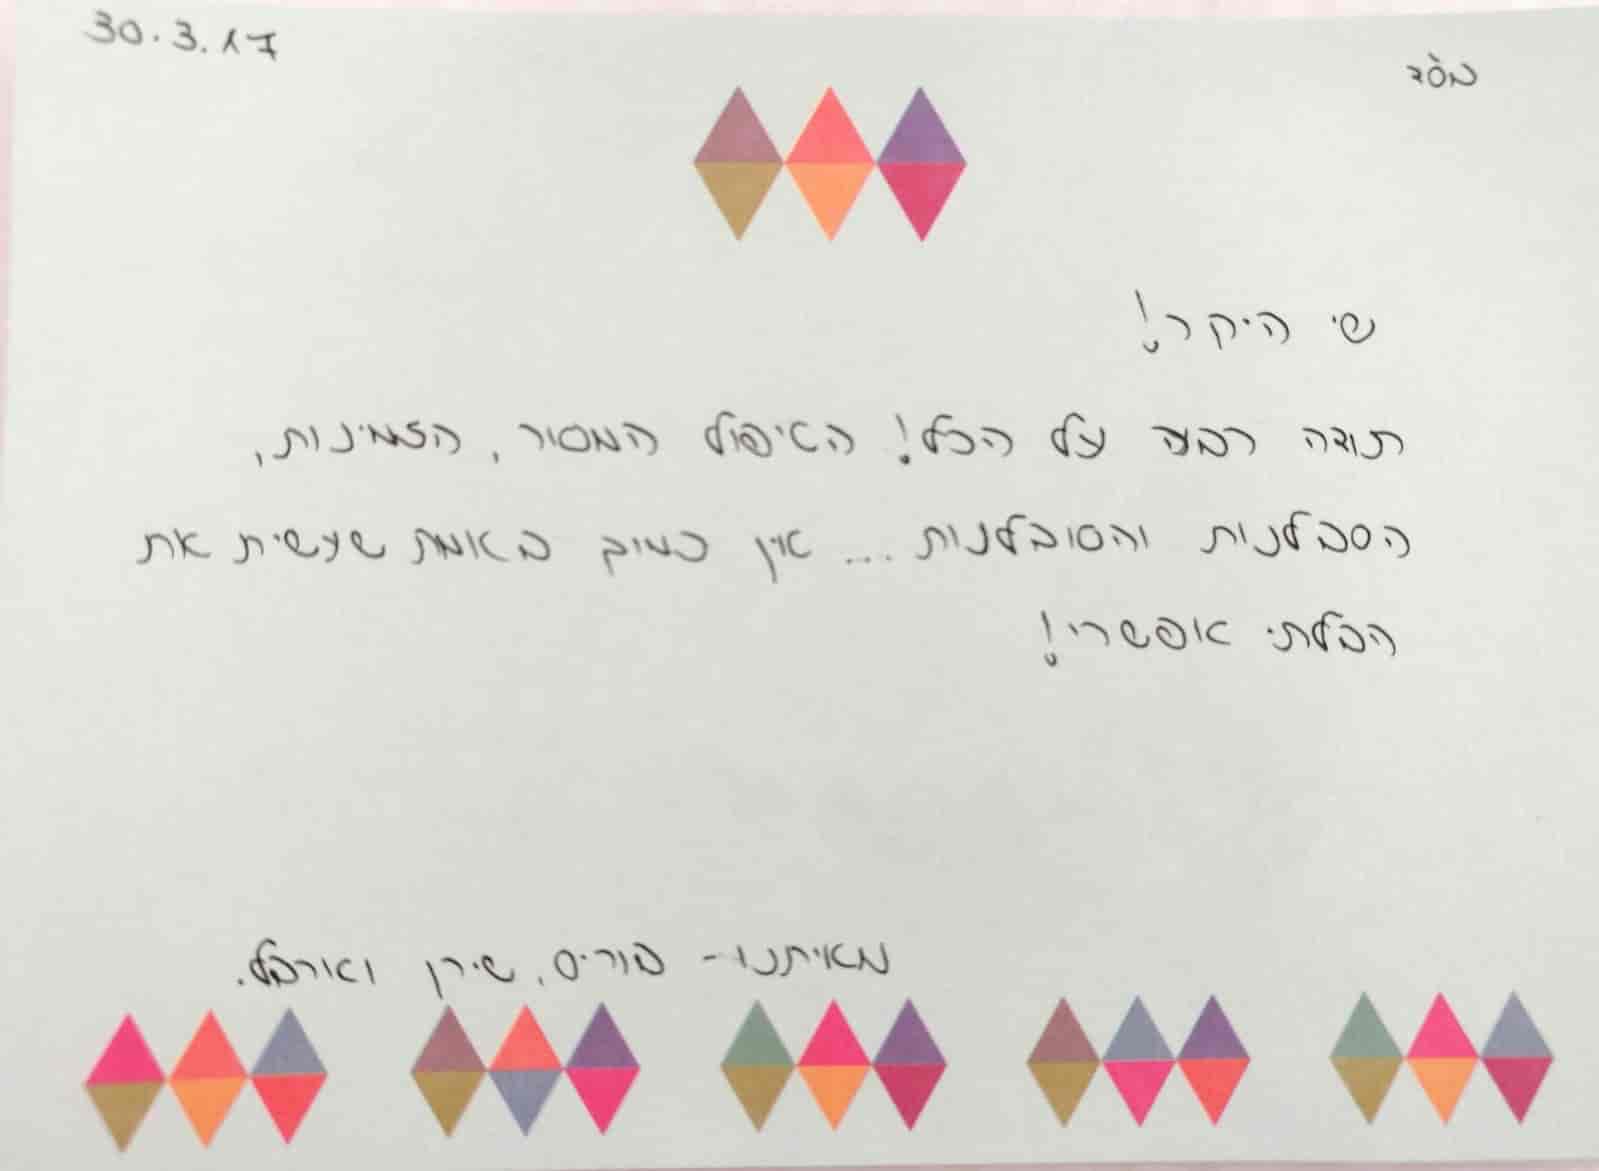 בס״ד
30.3.17
שי היקר!
תודה רבה על הכל! הטיפול המסור, הזמינות,
הסבלנות והסובלנות... אין כמוך באמת שעשית את
הבלתי אפשרי!
מאיתנו - בוריס, שירן ואורבל.